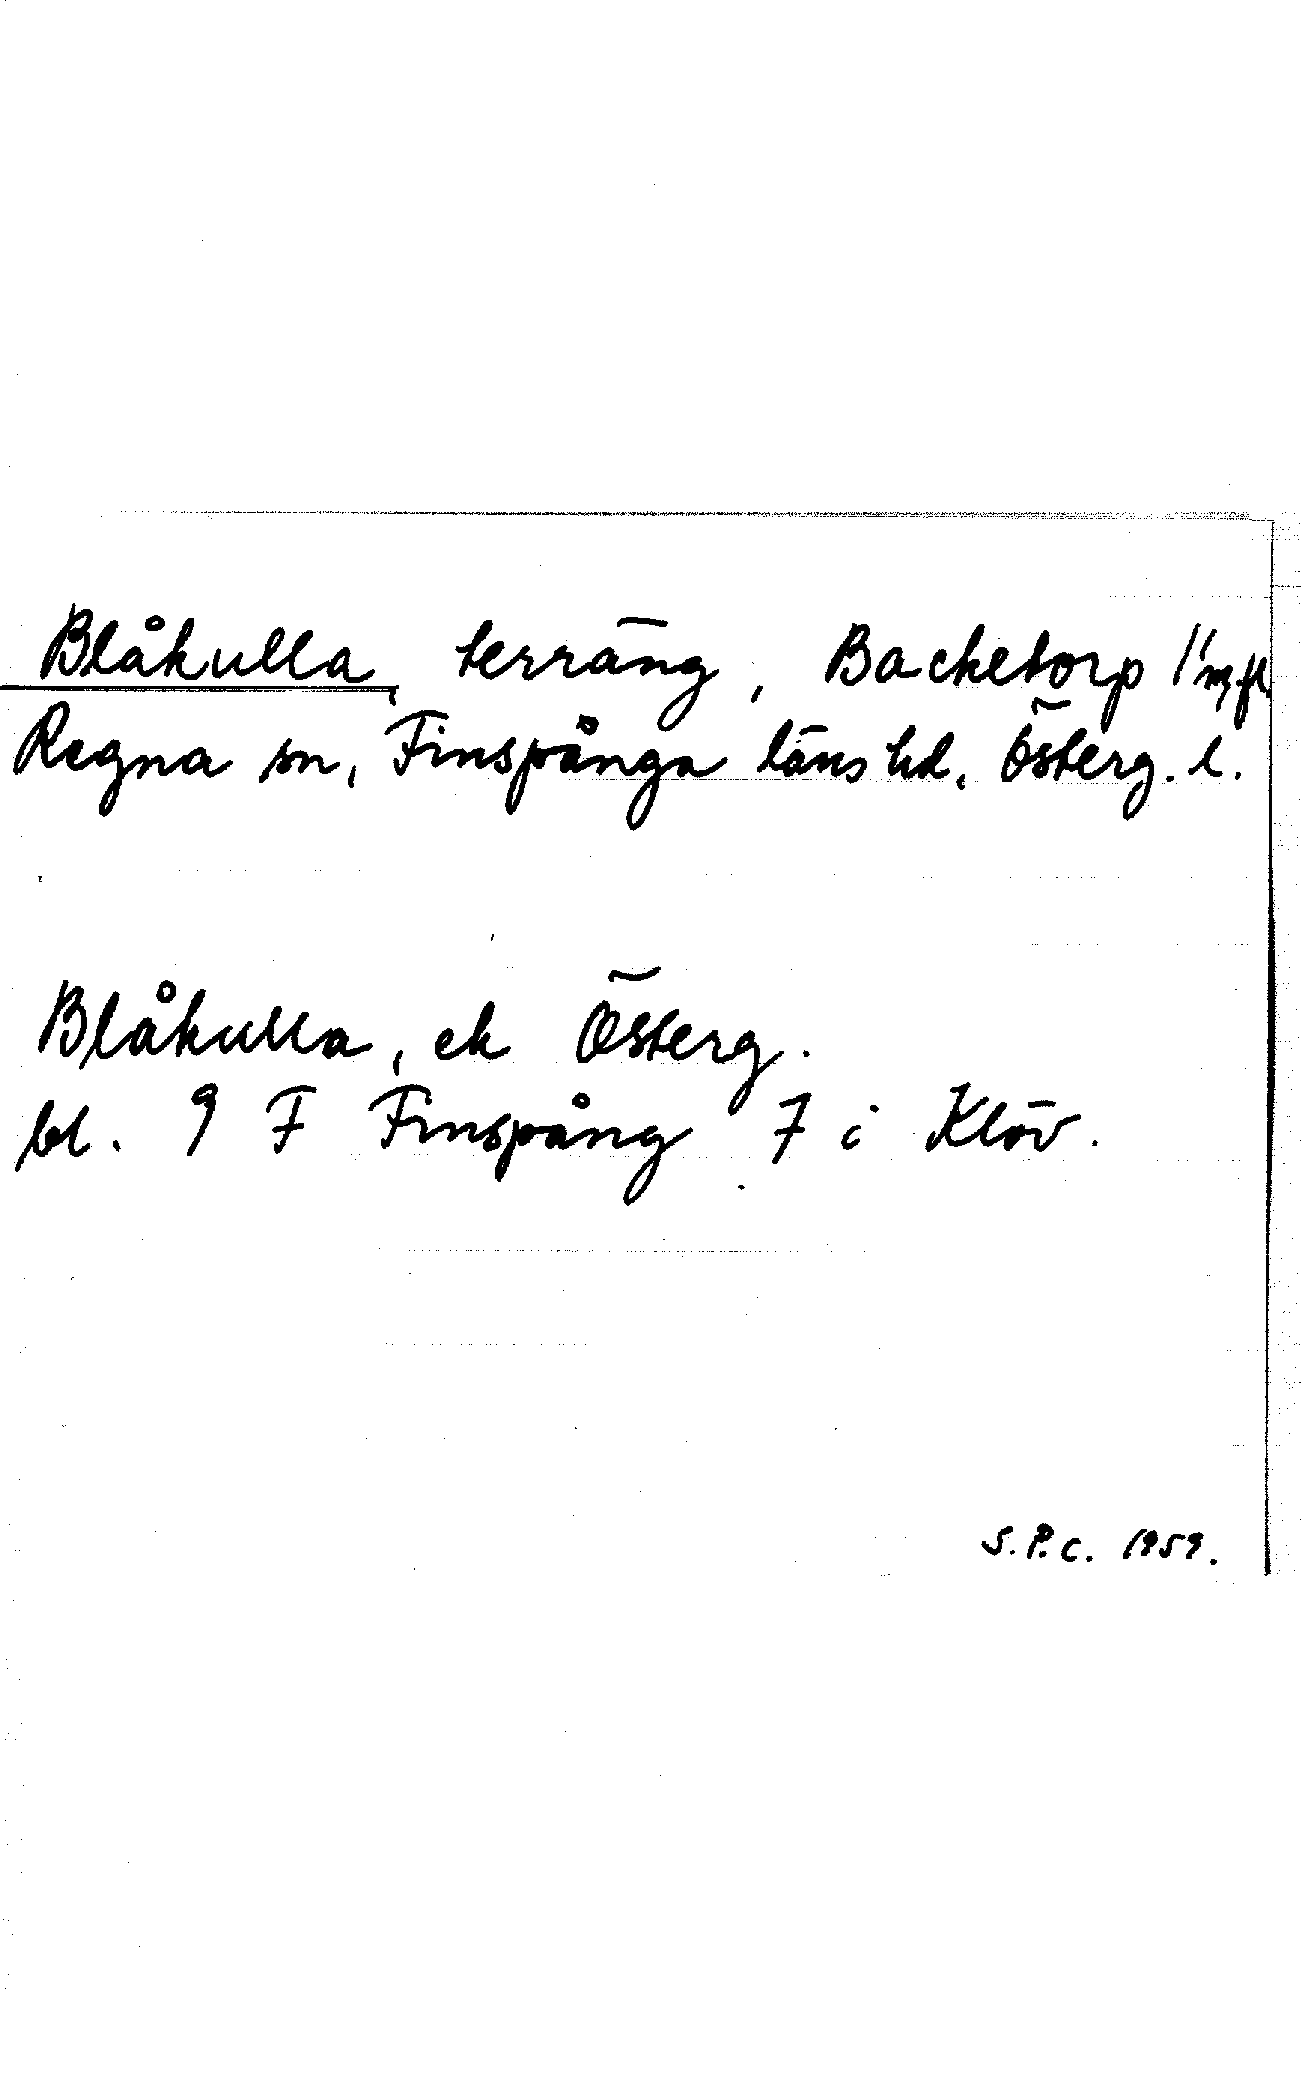 Blåkulla, terräng, Backetorp 1¹ m fl
Regna sn, Finspånga läns hd, Österg. l.
Blåkulla, ek Österg.
bl. 9 F Finspång 7 i Klöv.
S.P.C. 1959.